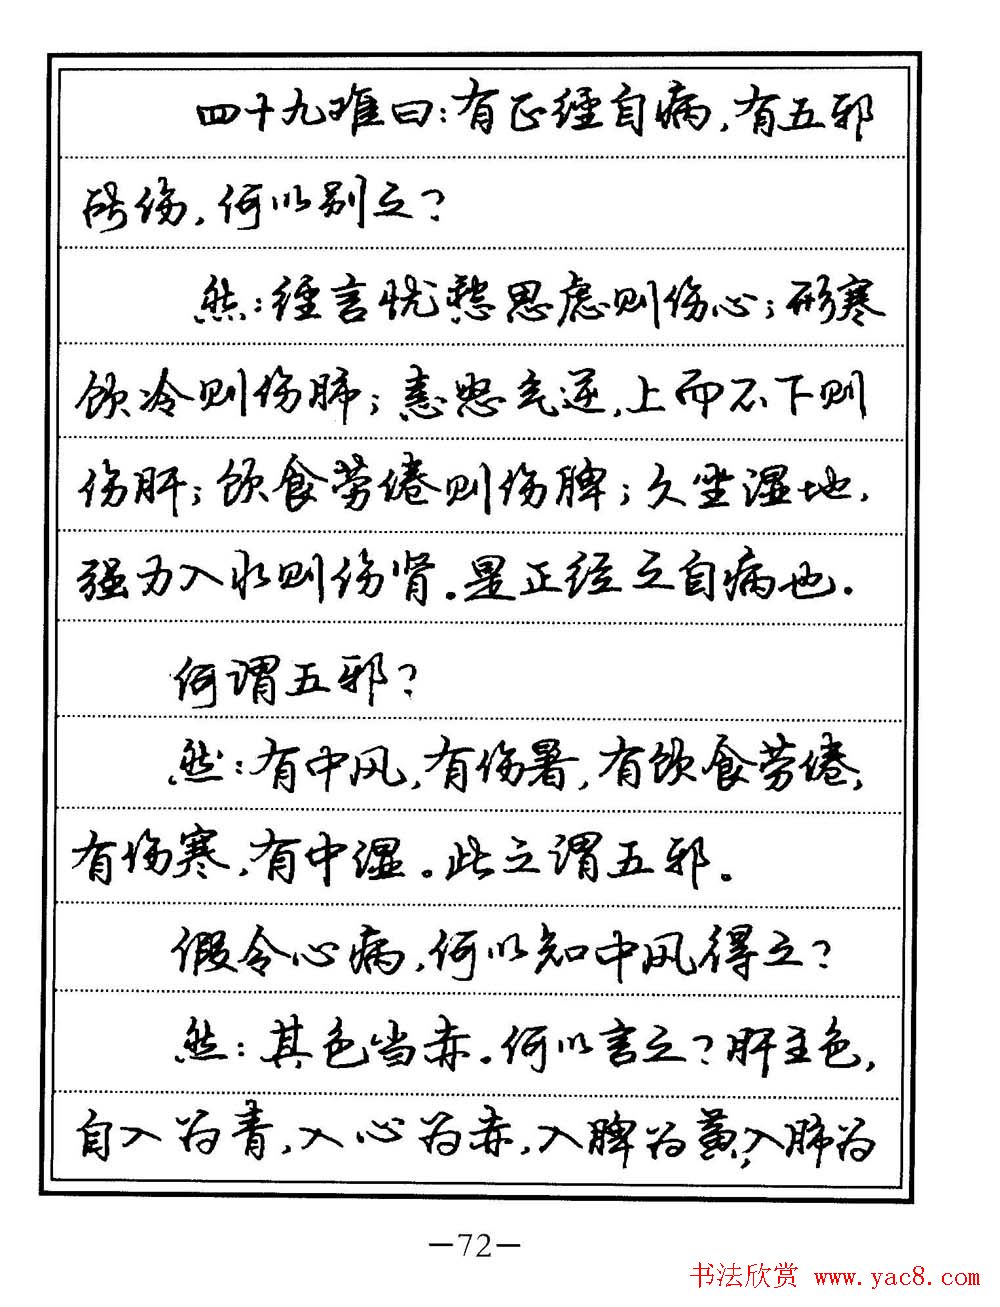 四十九难曰：有正经自病，有五邪
所伤，何以别之？
然：经言忧愁思虑则伤心；形寒
饮冷则伤肺；恚怒气逆，上而不下则
伤肝；饮食劳倦则伤脾；久坐湿地，
强力入水则伤肾。是正经之自病也。
何谓五邪？
然：有中风，有伤暑，有饮食劳倦，
有伤寒，有中湿。此之谓五邪。
假令心病，何以知中风得之？
然：其色当赤。何以言之？肝主色，
自入为青，入心为赤，入脾为黄，入肺为
—72—
书法欣赏 www.yac8.com